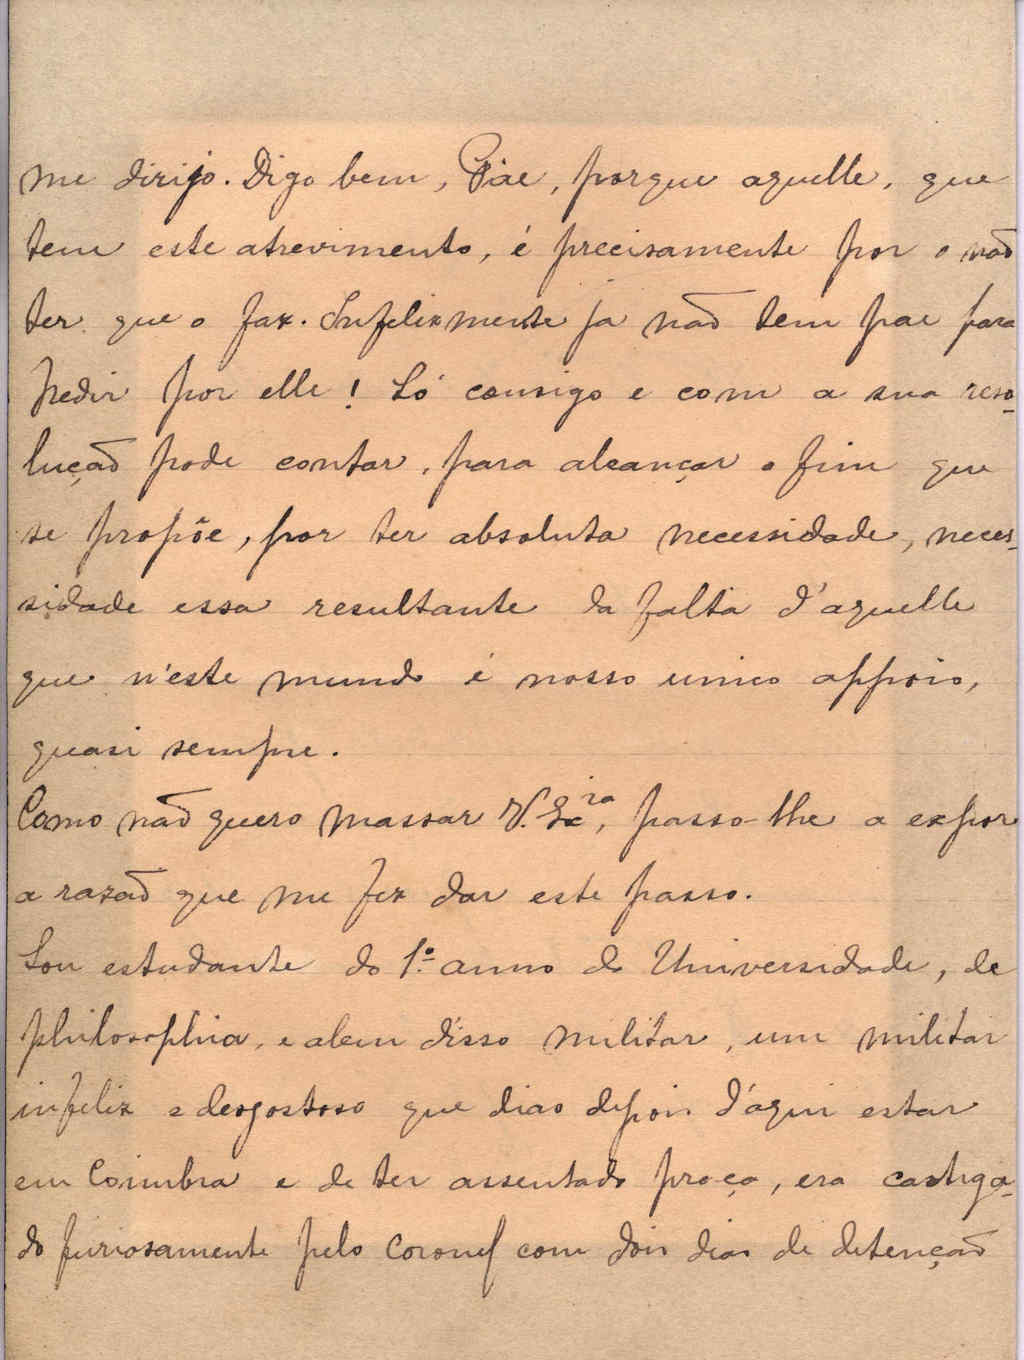 me dirijo. Digo bem, Páe, porque aquelle, que
tem este atrevimento, é precisamente por o não
ter que o faz. Infelizmente já não tem pae para
pedir por elle! Só comsigo e com a sua reso-
lução pode contar, para alcançar o fim que
se propõe, por ter absoluta necessidade, neces-
sidade essa resultante da falta d'aquelle
que n'este mundo é nosso unico appoio,
quasi sempre.
Como não quero massar V. Ex.cia, passo-lhe a expor
a razão que me fez dar este passo.
Sou estudante do 1.º anno da Universidade, de
philosophia, e alem disso militar, um militar
infeliz e desgostoso que dias depois d'aqui estar
em Coimbra e de ter assentado praça, era castiga-
do furiosamente pelo Coronel com dois dias de detenção